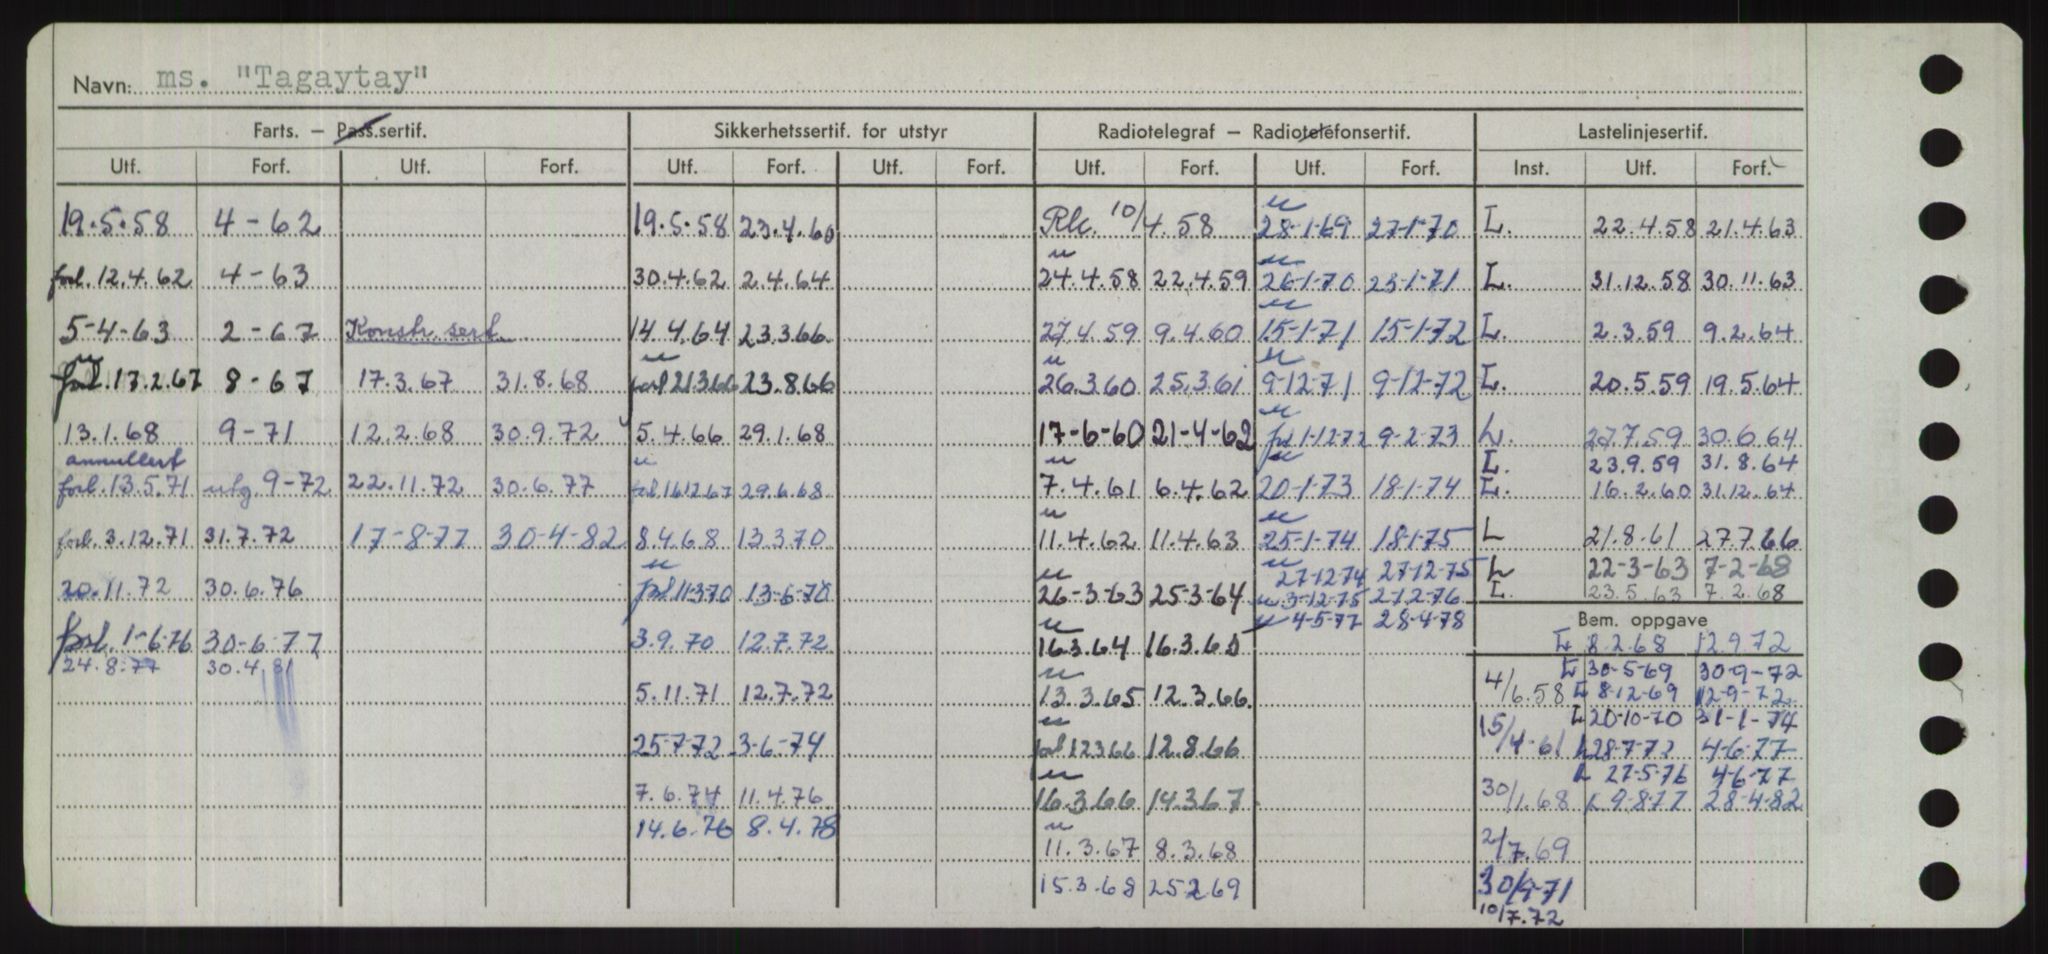 Navn: ms. "Tagaytay"
Farts. – Pass.sertif. Sikkerhetssertif. for utstyr Radiotelegraf – Radiotelefonsertif. Lastelinjesertif.
Utf. Forf. Utf. Forf. Utf. Forf. Utf. Forf. Utf. Forf. Utf. Forf. Inst. Utf. Forf.
19.5.58 4-62 19.5.58 23.4.60 Rlc. 10/4.58 u 28-1-69 27-1-70 L. 22.4.58 21.4.63
forl. 12.4.62 4-63 30.4.62 2.4.64 u 24.4.58 22.4.59 u 26-1-70 25-1-71 L. 31.12.58 30.11.63
5-4-63 2-67 Konstr. sert. 14.4.64 23.3.66 27.4.59 9.4.60 u 15-1-71 15-1-72 L. 2.3.59 9.2.64
forl. 17.2.67 8-67 17.3.67 31.8.68 u forl 21.3.66 23.8.66 u 26.3.60 25.3.61 u 9-12-71 9-12-72 L. 20.5.59 19.5.64
13.1.68 9-71 12.2.68 30.9.72 5.4.66 29.1.68 17-6-60 21-4-62 u forl 1-12-72 9-2-73 L. 27.7.59 30.6.64
annullert L. 23.9.59 31.8.64
forl. 13.5.71 utg. 9-72 22.11.72 30.6.77 u forl 16.12.67 29.6.68 u 7.4.61 6.4.62 u 20-1-73 18-1-74 L. 16.2.60 31.12.64
forl. 3.12.71 31.7.72 17-8-77 30-4-82 8.4.68 13.3.70 u 11.4.62 11.4.63 u 25-1-74 18-1-75 L 21.8.61 27.7.66
u 27-12-74 27-12-75 L 22-3-63 7-2-68
20.11.72 30.6.76 u forl 11-3-70 13-6-70 u 26-3-63 25-3-64 u 3-12-75 2-12-76 L. 23.5.63 7.2.68
u 4-5-77 28-4-78 Bem. oppgave
forl. 1-6-76 30-6-77 3.9.70 12.7.72 u 16.3.64 16.3.65 L 8.2.68 12.9.72
24.8.77 30.4.81 L 30-5-69 30-9-72
5.11.71 12.7.72 u 13.3.65 12.3.66 4/6.58 L 8-12-69 12-9-72
15/4-61 L 20-10-70 31-1-74
25-7-72 3-6-74 u forl 12.3.66 12.8.66 L 28-7-72 4-6-77
L 27-5-76 4-6-77
7.6.74 11.4.76 u 16.3.66 14.3.67 30/1.68 L 9-8-77 28-4-82
14.6.76 8.4.78
u 11.3.67 8.3.68 2/7.69
15.3.68 25.2.69 30/9-71
10/7.72